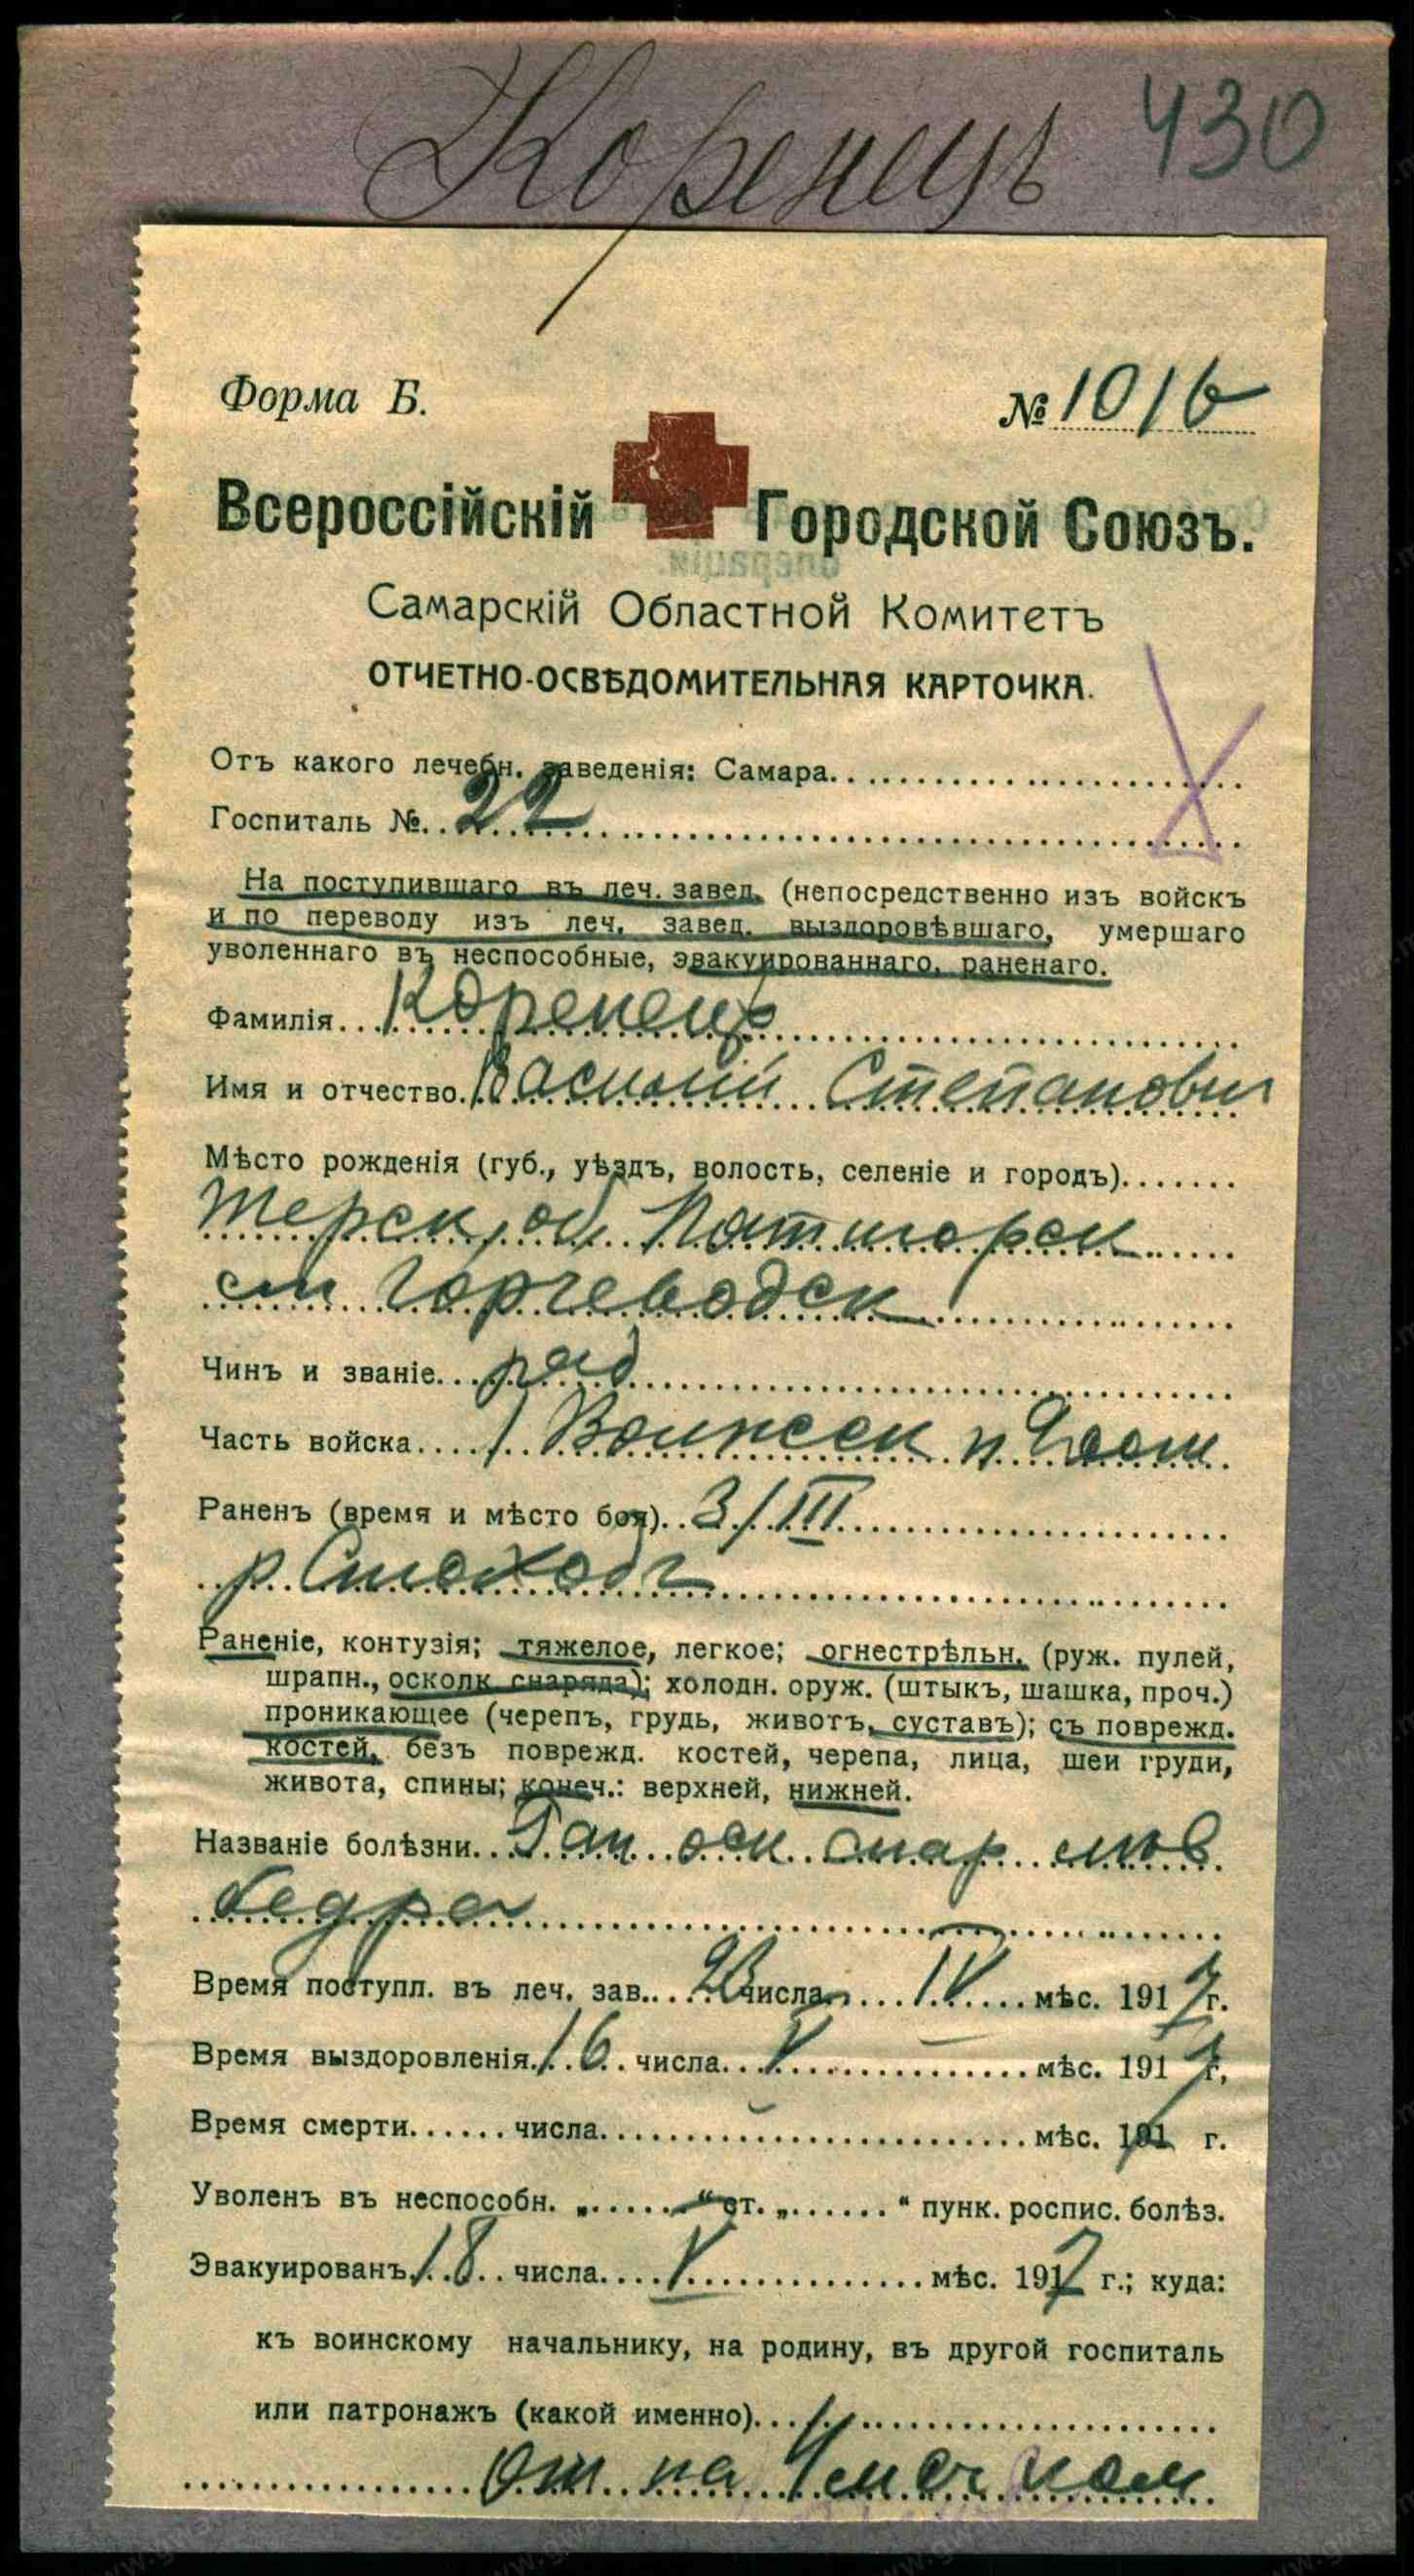 Коренецъ 430
Форма Б. № 1016
Всероссійскій Городской Союзъ.
Самарскій Областной Комитетъ
ОТЧЕТНО-ОСВѢДОМИТЕЛЬНАЯ КАРТОЧКА.
Отъ какого лечебн. заведенія: Самара
Госпиталь № 22
На поступившаго въ леч. завед. (непосредственно изъ войскъ
и по переводу изъ леч. завед. выздоровѣвшаго, умершаго
уволеннаго въ неспособные, эвакуированнаго, раненаго.
Фамилія Коренецъ
Имя и отчество Василий Степанович
Мѣсто рожденія (губ., уѣздъ, волость, селеніе и городъ)
Терск об Пятигорск
ст Горячеводск
Чинъ и званіе ряд
Часть войска 1 п
Раненъ (время и мѣсто боя) 3/III
р. Стоход
Раненіе, контузія; тяжелое, легкое; огнестрѣльн. (руж. пулей,
шрапн., осколк. снаряда); холодн. оруж. (штыкъ, шашка, проч.)
проникающее (черепъ, грудь, животъ, суставъ); съ поврежд.
костей, безъ поврежд. костей, черепа, лица, шеи груди,
живота, спины; конеч.: верхней, нижней.
Названіе болѣзни Ран оск снар лев
бедра
Время поступл. въ леч. зав. числа IV мѣс. 1917 г.
Время выздоровленія 16 числа V мѣс. 1917 г.
Время смерти числа мѣс. 191 г.
Уволенъ въ неспособн. „ “ ст. „ “ пунк. роспис. болѣз.
Эвакуированъ 18 числа V мѣс. 1917 г.; куда:
къ воинскому начальнику, на родину, въ другой госпиталь
или патронажъ (какой именно)
на ком